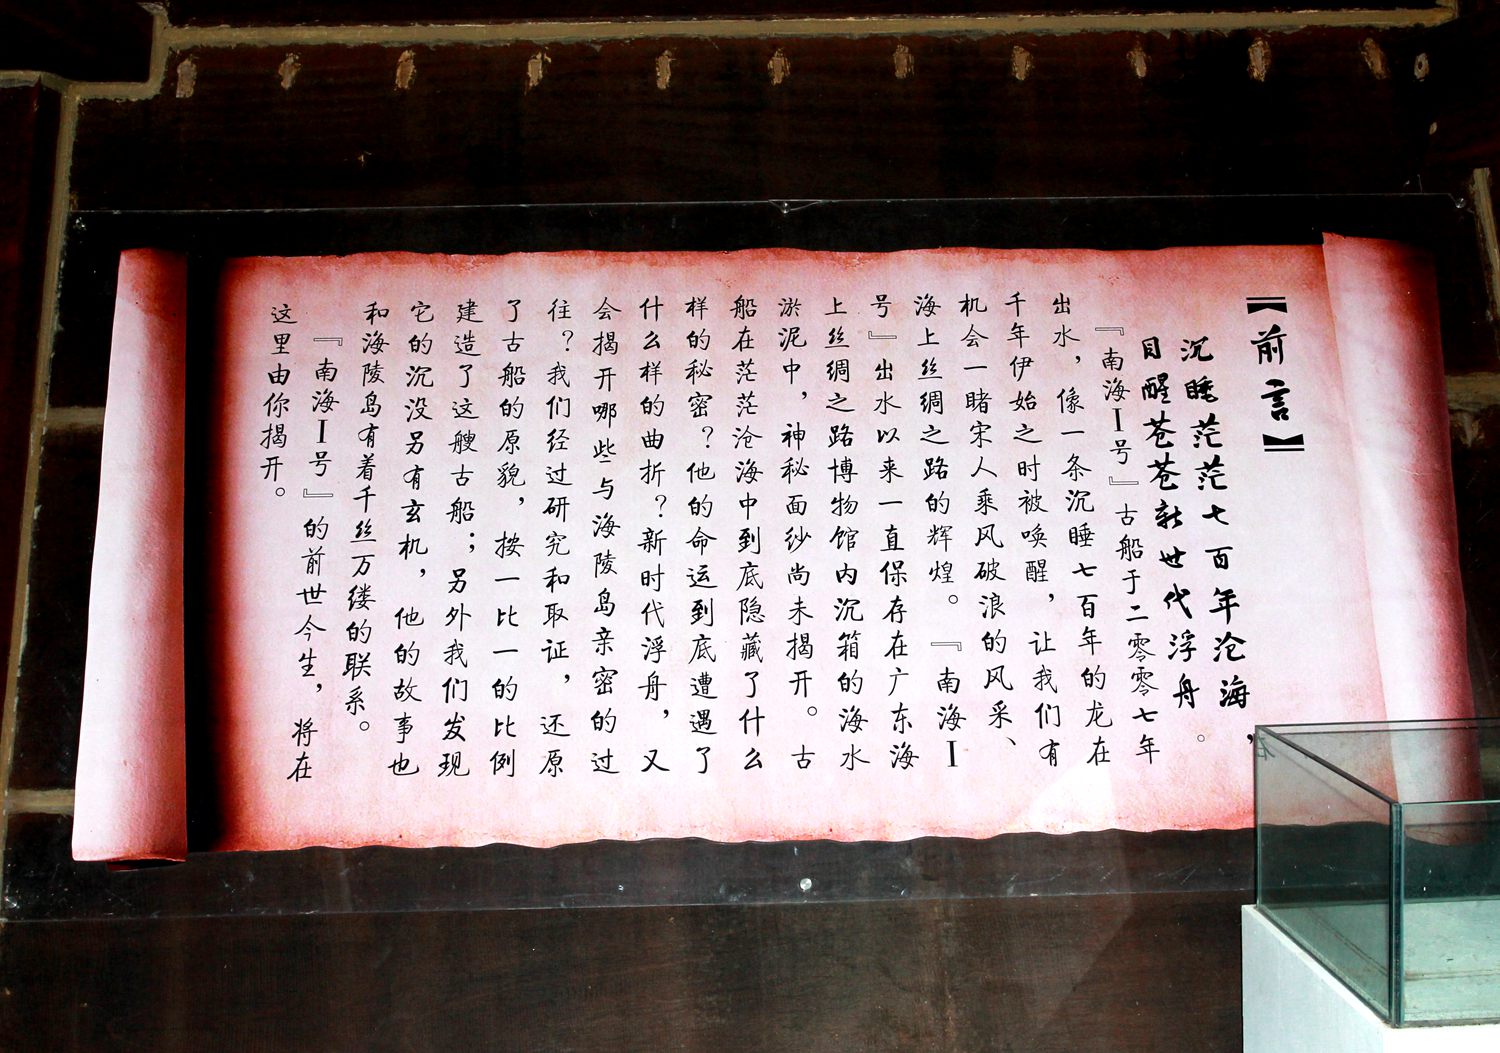 【前言】
沉睡茫茫七百年沧海，
目醒苍苍新世代浮舟。
『南海I号』古船于二零零七年
出水，像一条沉睡七百年的龙在
千年伊始之时被唤醒，让我们有
机会一睹宋人乘风破浪的风采、
海上丝绸之路的辉煌。『南海I
号』出水以来一直保存在广东海
上丝绸之路博物馆内沉箱的海水
淤泥中，神秘面纱尚未揭开。古
船在茫茫沧海中到底隐藏了什么
样的秘密？他的命运到底遭遇了
什么样的曲折？新时代浮舟，又
会揭开哪些与海陵岛亲密的过
往？我们经过研究和取证，还原
了古船的原貌，按一比一的比例
建造了这艘古船；另外我们发现
它的沉没另有玄机，他的故事也
和海陵岛有着千丝万缕的联系。
『南海I号』的前世今生，将在
这里由你揭开。